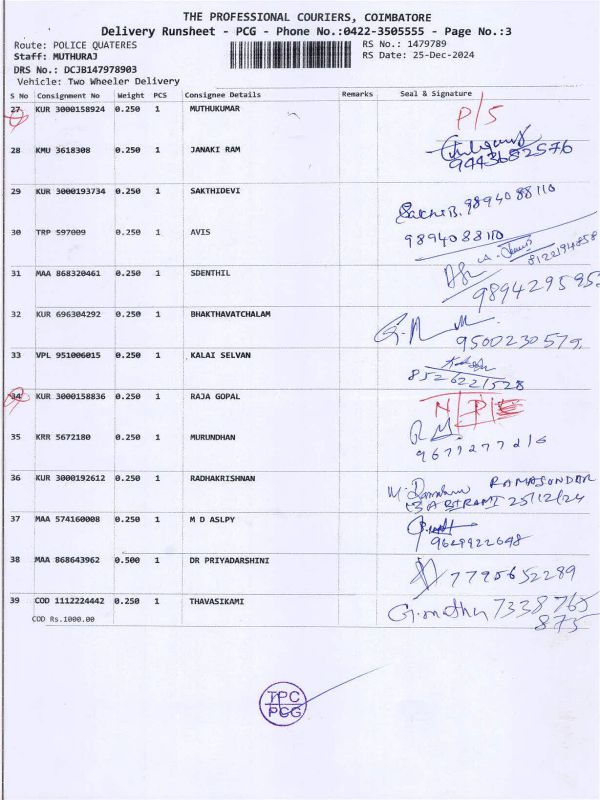 THE PROFESSIONAL COURIERS, COIMBATORE
Delivery Runsheet - PCG - Phone No.:0422-3505555 - Page No.:3
Route: POLICE QUATERES RS No.: 1479789
Staff: MUTHURAJ RS Date: 25-Dec-2024
DRS No.: DCJB147978903
Vehicle: Two Wheeler Delivery
S No Consignment No Weight PCS Consignee Details Remarks Seal & Signature
27 KUR 3000158924 0.250 1 MUTHUKUMAR P/S
28 KMU 3618308 0.250 1 JANAKI RAM
9443682576
29 KUR 3000193734 0.250 1 SAKTHIDEVI
9894088110
30 TRP 597009 0.250 1 AVIS 9894088110
31 MAA 868320461 0.250 1 SDENTHIL
32 KUR 696304292 0.250 1 BHAKTHAVATCHALAM
9500230579
33 VPL 951006015 0.250 1 KALAI SELVAN
8526221528
34 KUR 3000158836 0.250 1 RAJA GOPAL
35 KRR 5672180 0.250 1 MURUNDHAN R M
9677277216
36 KUR 3000192612 0.250 1 RADHAKRISHNAN RAMASUNDAR
25/12/24
37 MAA 574160008 0.250 1 M D ASLPY
9629922698
38 MAA 868643962 0.500 1 DR PRIYADARSHINI 7795652289
39 COD 1112224442 0.250 1 THAVASIKAMI G.mathu 7338765
COD Rs.1000.00 875
TPC
PCG